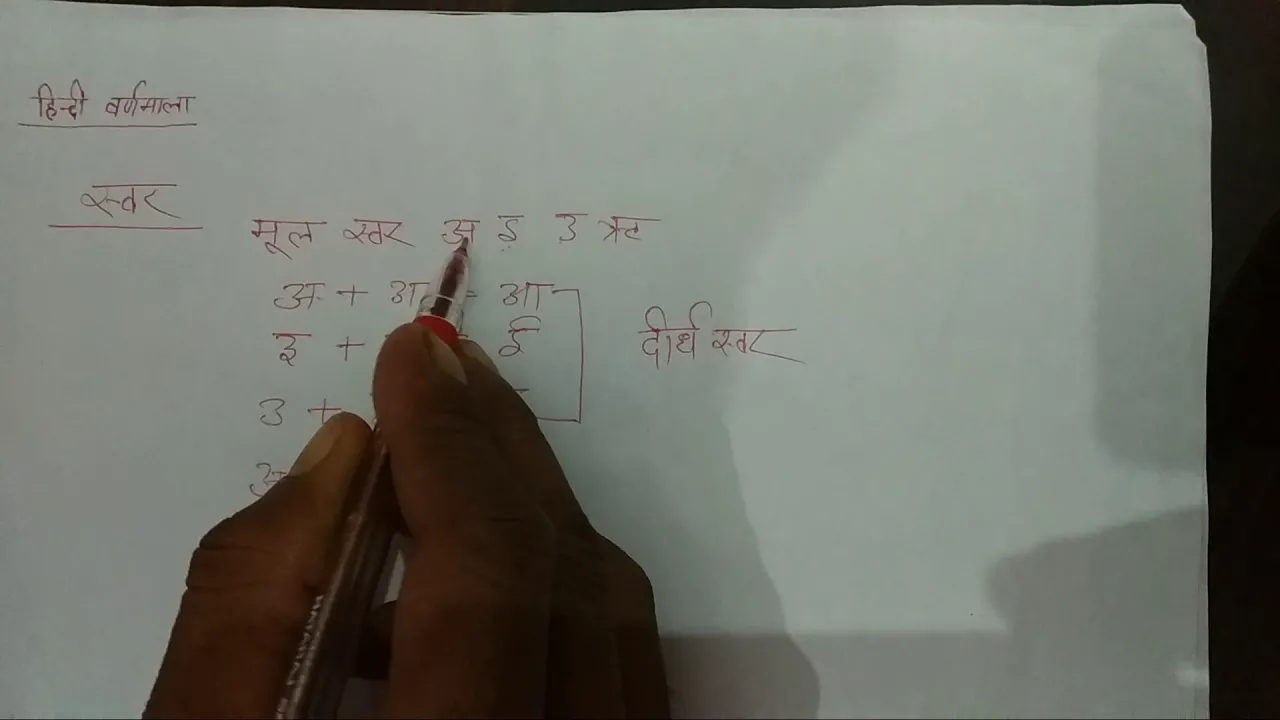 हिन्दी वर्णमाला
स्वर
मूल स्वर अ इ उ ऋ
अ + अ = आ
इ + ई
दीर्घ स्वर
उ +
अ